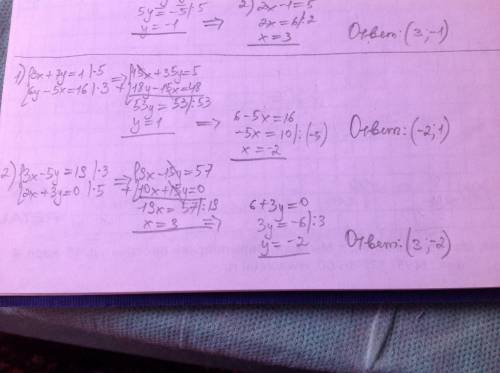 5y = -5 |:5
y = -1 ⇒
2) 2x-1=5
2x=6|:2
x=3
Ответ: (3;-1)
1) {3x+7y=1|·5
{6y-5x=16|·3 ⇒
{15x+35y=5
+{18y-15x=48
53y=53|:53
y=1 ⇒
6-5x=16
-5x=10|:(-5)
x=-2
Ответ: (-2;1)
2) {3x-5y=19|·3
{2x+3y=0|·5 ⇒
{9x-15y=57
+{10x+15y=0
19x=57|:19
x=3 ⇒
6+3y=0
3y=-6|:3
y=-2
Ответ: (3;-2)